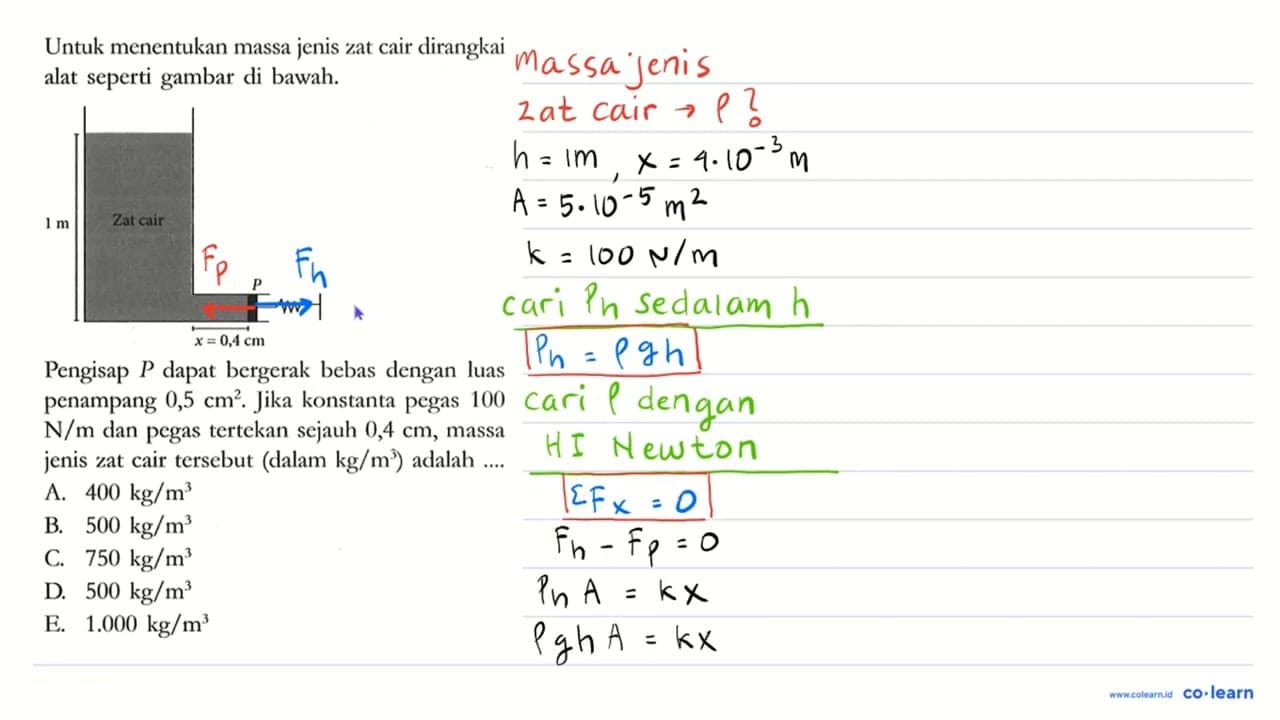 Untuk menentukan massa jenis zat cair dirangkai
alat seperti gambar di bawah.
1 m
Zat cair
Fp
Fh
P
x = 0,4 cm
Pengisap P dapat bergerak bebas dengan luas
penampang 0,5 cm². Jika konstanta pegas 100
N/m dan pegas tertekan sejauh 0,4 cm, massa
jenis zat cair tersebut (dalam kg/m³) adalah ....
A. 400 kg/m³
B. 500 kg/m³
C. 750 kg/m³
D. 500 kg/m³
E. 1.000 kg/m³
Massa jenis
zat cair → ρ?
h = 1m, x = 4·10⁻³ m
A = 5·10⁻⁵ m²
k = 100 N/m
cari Ph sedalam h
Ph = ρgh
cari ρ dengan
HI Newton
ΣFx = 0
Fh - Fp = 0
Ph A = kx
ρgh A = kx
www.colearn.id co·learn